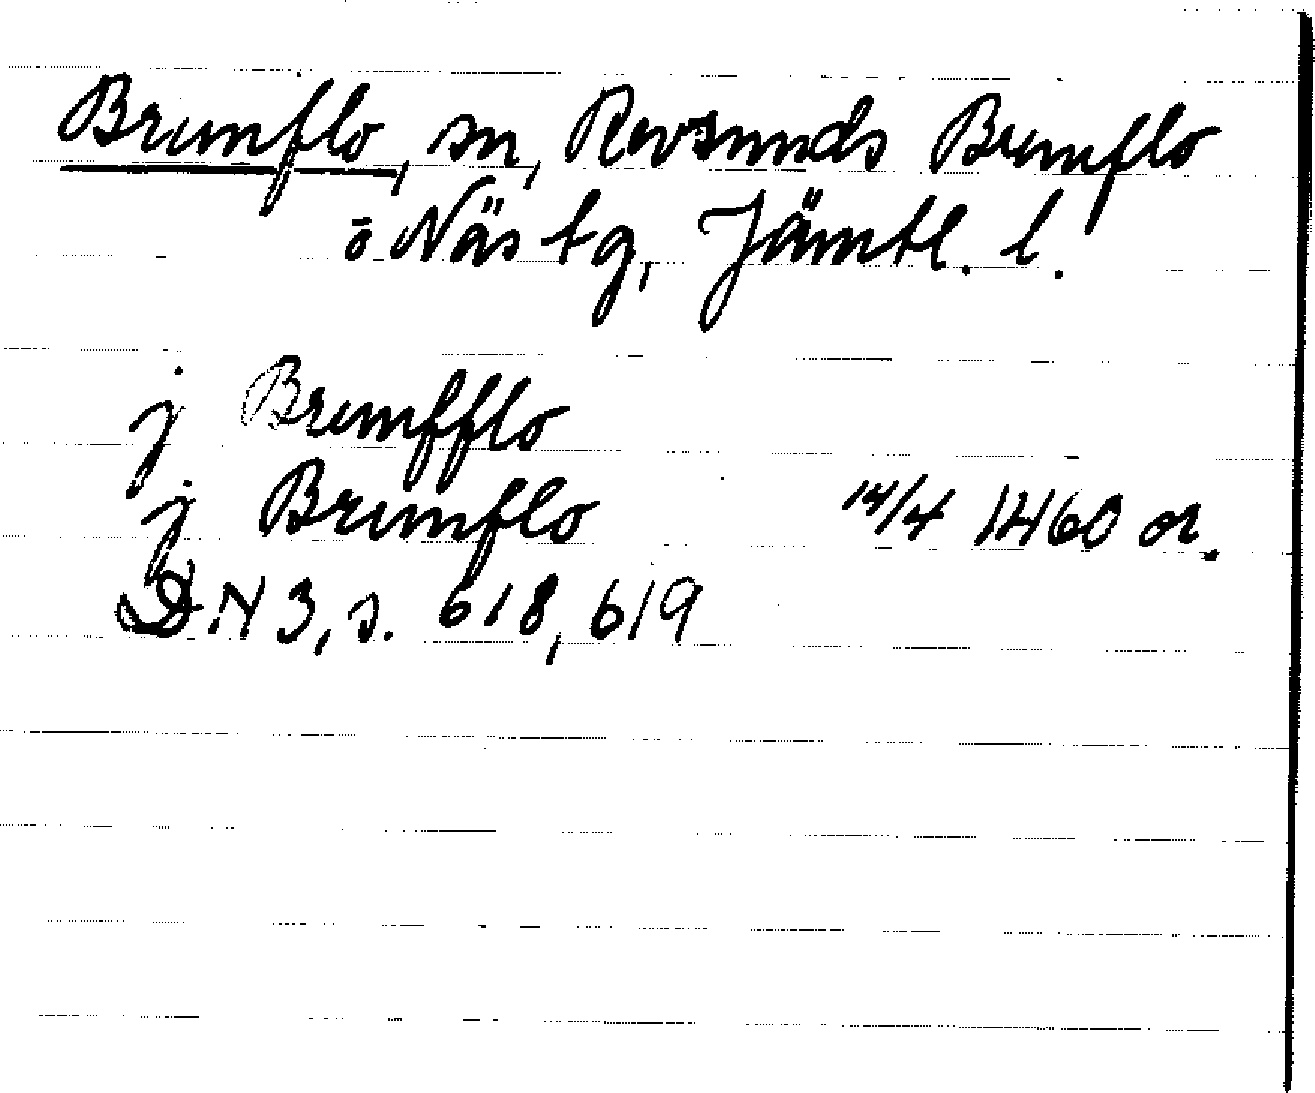 Brunflo, sn, Revsunds Brunflo
o Näs tg, Jämtl. l.
j Brumfflo
j Brumflo 14/4 1460 or.
DN 3, s. 618, 619